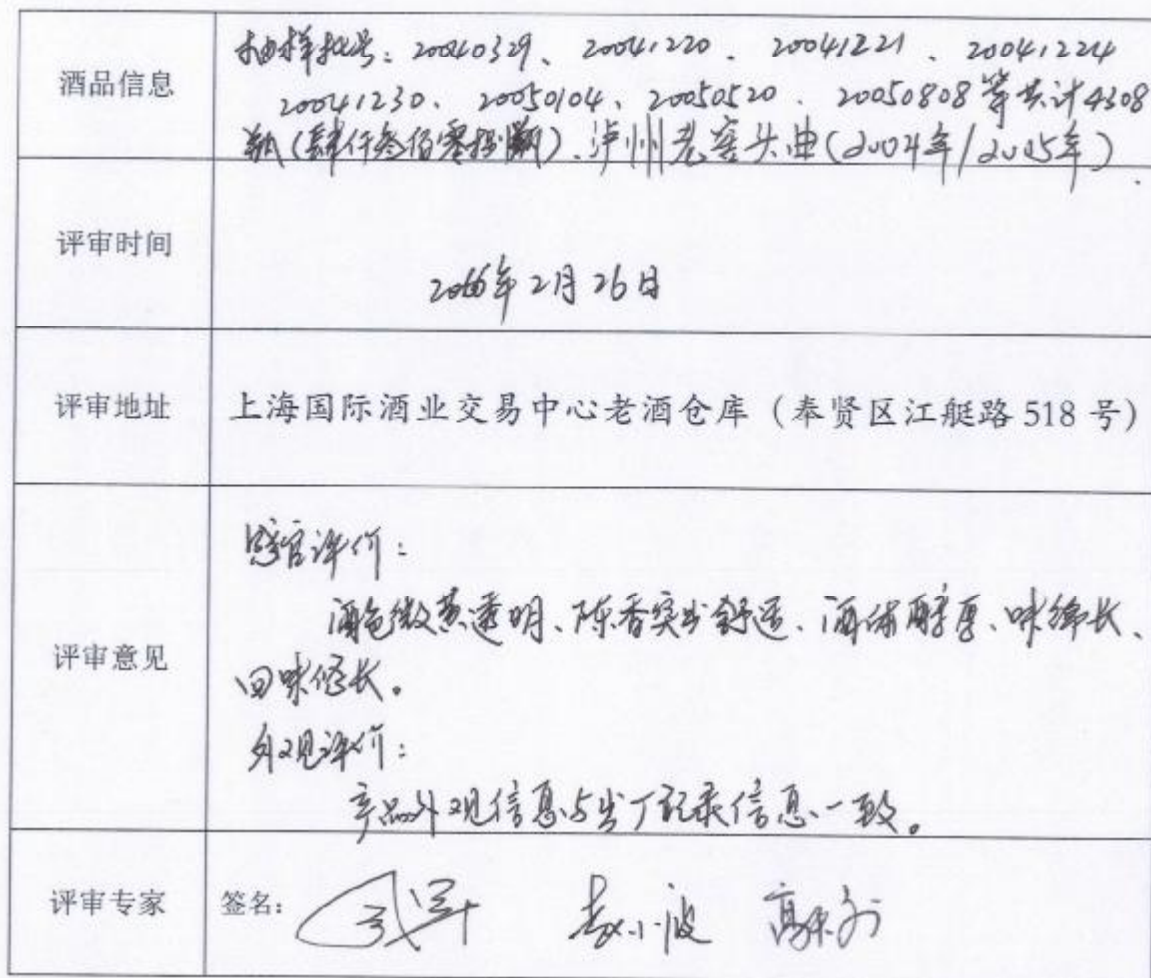 酒品信息
抽样批号：20040329、20041220、20041221、20041224
20041230、20050104、20050520、20050808等共计4308
瓶（肆仟叁佰零捌瓶）、泸州老窖头曲（2004年/2005年）
评审时间
年2月26日
评审地址
上海国际酒业交易中心老酒仓库（奉贤区江艇路518号）
评审意见
感官评价：
酒色微黄透明、陈香突出舒适、酒体醇厚、味绵长、
回味悠长。
外观评价：
产品外观信息与出厂记录信息一致。
评审专家
签名：
小波